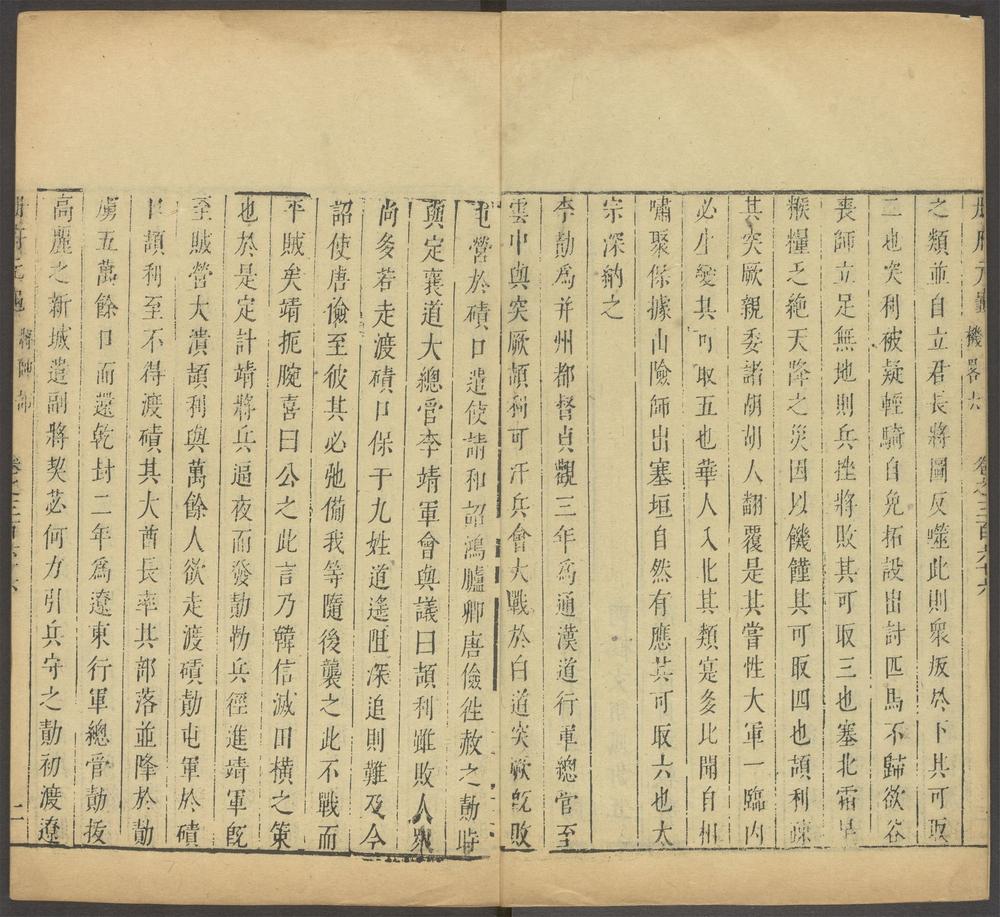 冊府元龜 機畧六 卷之三百六十六
之類並自立君長將圖反噬此則衆叛於下其可取
二也突利破疑輕騎自免拓設出討匹馬不歸欲谷
喪師立足無地則兵挫將敗其可取三也塞北霜旱
糇糧乏絶天降之災因以饑饉其可取四也頡利疎
其突厥親委諸胡胡人翻覆是其嘗性大軍一臨内
必生變其可取五也華人入北其類寔多比聞自相
嘯聚保據山險師出塞垣自然有應其可取六也太
宗深納之
李勣爲并州都督貞觀三年爲通漢道行軍總官至
雲中與突厥頡利可汗兵會大戰於白道突厥旣敗
屯營於磧口遣使請和詔鴻臚卿唐儉徃赦之勣時
與定襄道大總管李靖軍會與議曰頡利雖敗人衆
尚多若走渡磧口保于九姓道遙阻深追則難及今
詔使唐儉至彼其必弛備我等隨後襲之此不戰而
平賊矣靖扼腕喜曰公之此言乃韓信滅田橫之策
也於是定計靖將兵逼夜而發勣勒兵徑進靖軍旣
至賊營大潰頡利與萬餘人欲走渡磧勣屯軍於磧
口頡利至不得渡磧其大酋長率其部落並降於勣
虜五萬餘口而還乾封二年爲遼東行軍總管勣拔
高麗之新城遣副將契苾何力引兵守之勣初渡遼
冊府元龜 將帥部 卷之三百六十六 二